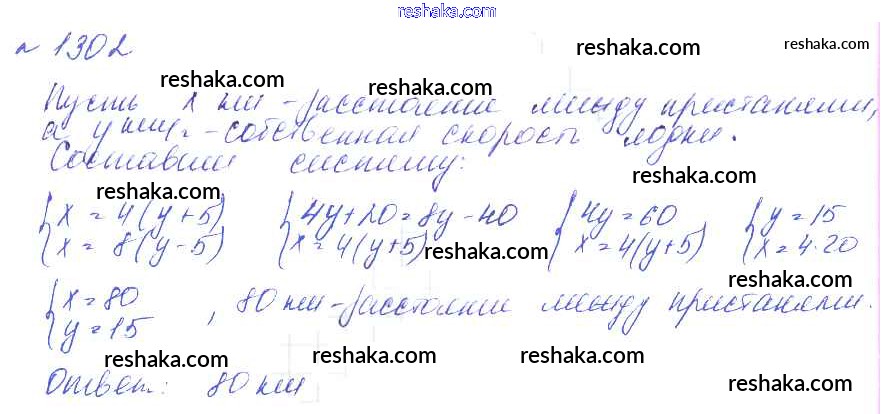 reshaka.com
№ 1302
reshaka.com
reshaka.com
reshaka.com reshaka.com
Пусть x км - расстояние между пристанями,
а y км/ч - собственная скорость лодки.
reshaka.com reshaka.com
Составим систему:
reshaka.com
reshaka.com reshaka.com reshaka.com
{x = 4(y+5) {4y+20=8y-40 {4y=60 {y=15
{x = 8(y-5) {x=4(y+5) {x=4(y+5) {x=4·20
reshaka.com reshaka.com
reshaka.com
{x=80
{y=15 , 80 км - расстояние между пристанями.
reshaka.com reshaka.com reshaka.com
Ответ: 80 км
reshaka.com